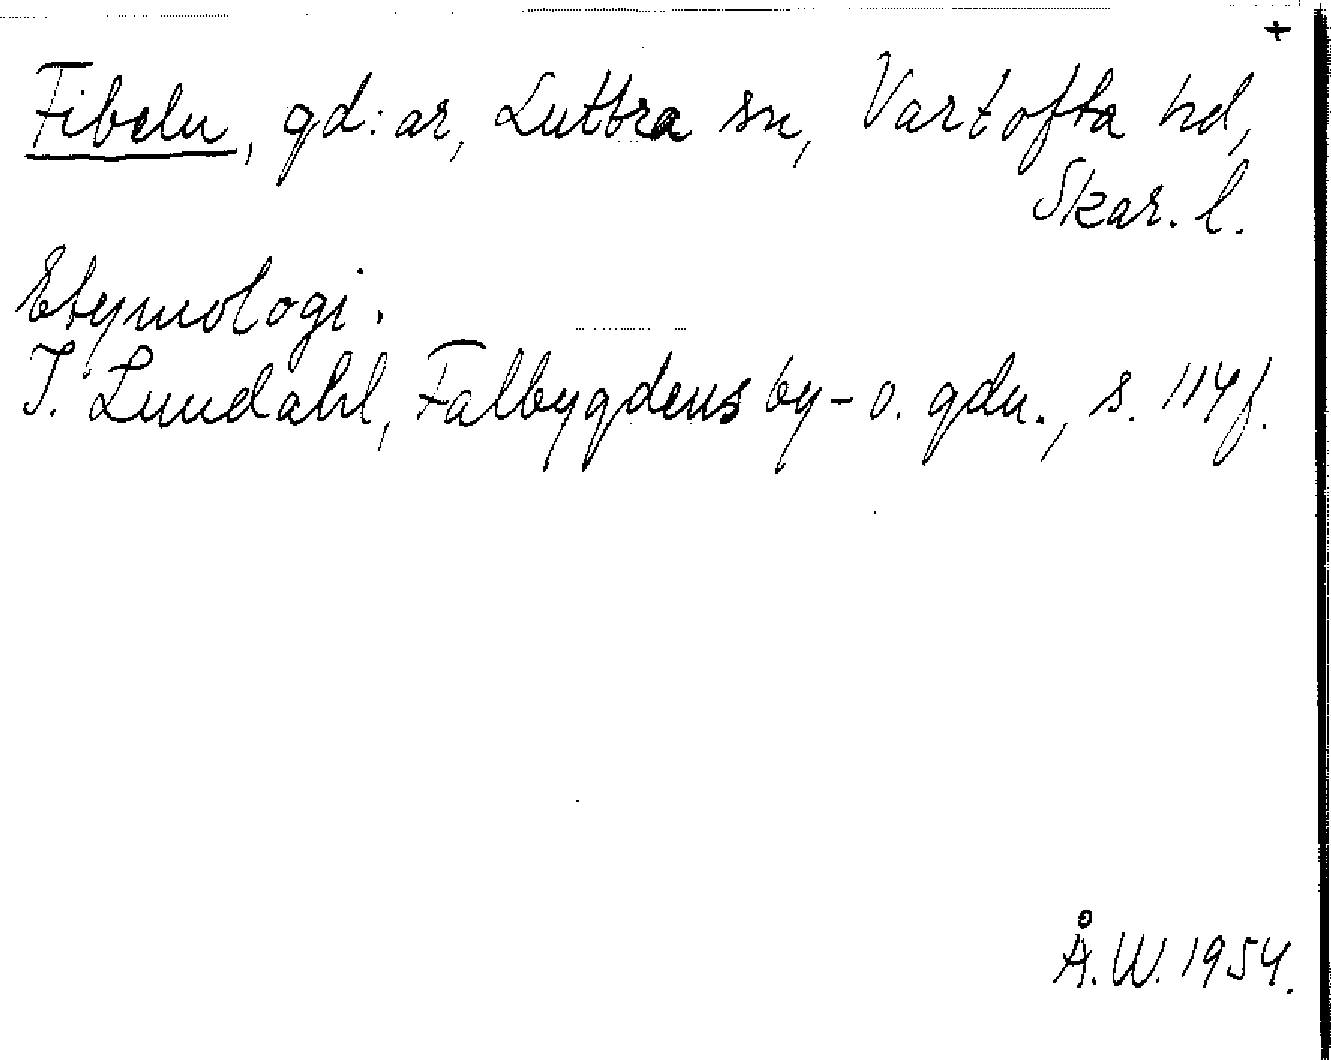 +
Fibeln, gd:ar, Luttra sn, Vartofta hd,
Skar. l.
Etymologi.
I. Lundahl, Falbygdens by- o. gdn., s. 114f.
Å.W. 1954.